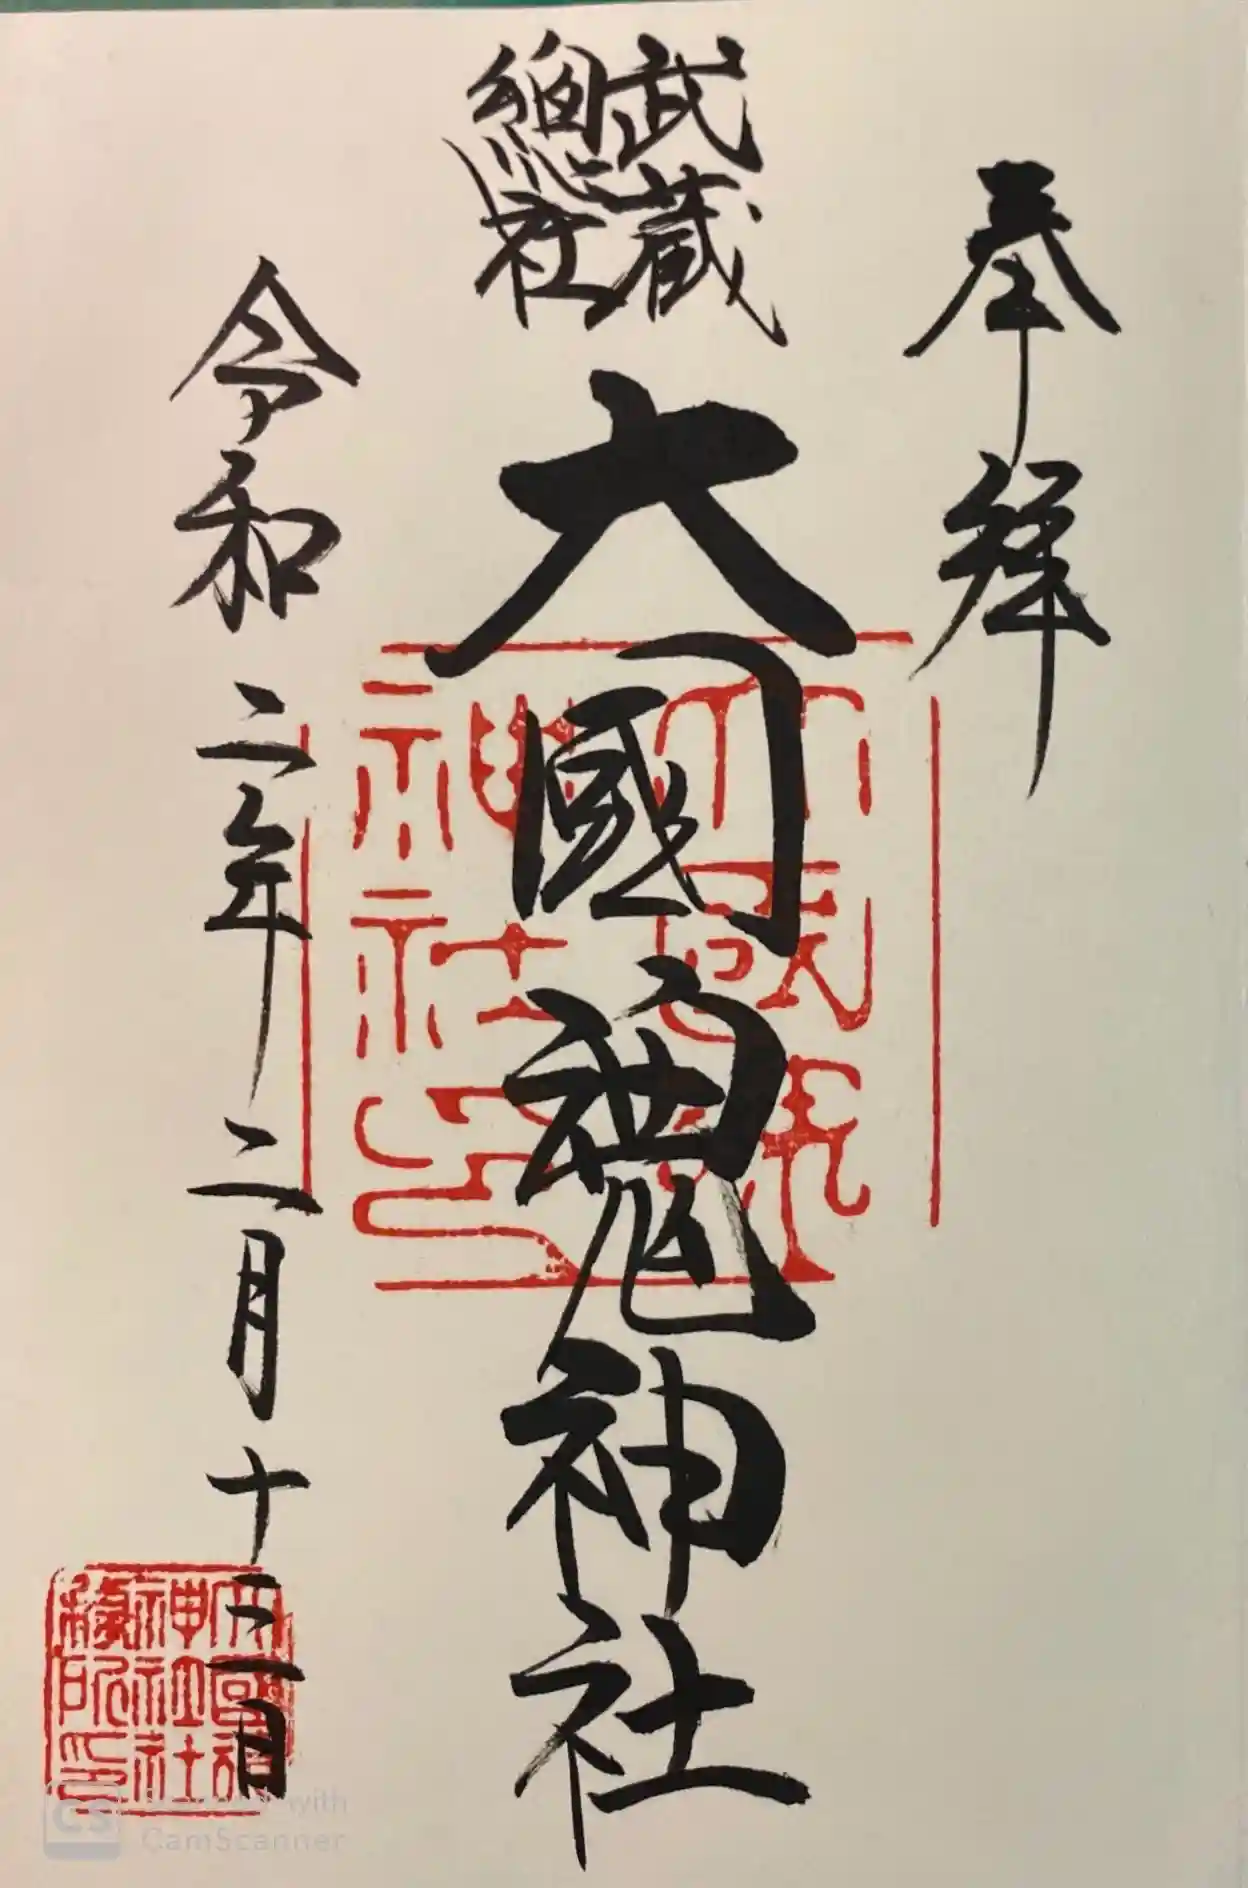 奉拝
武蔵
總社
大國魂神社
令和二年二月十三日
大國魂
神社印
大國魂
神社社
務所印
CS
Scanned with
CamScanner